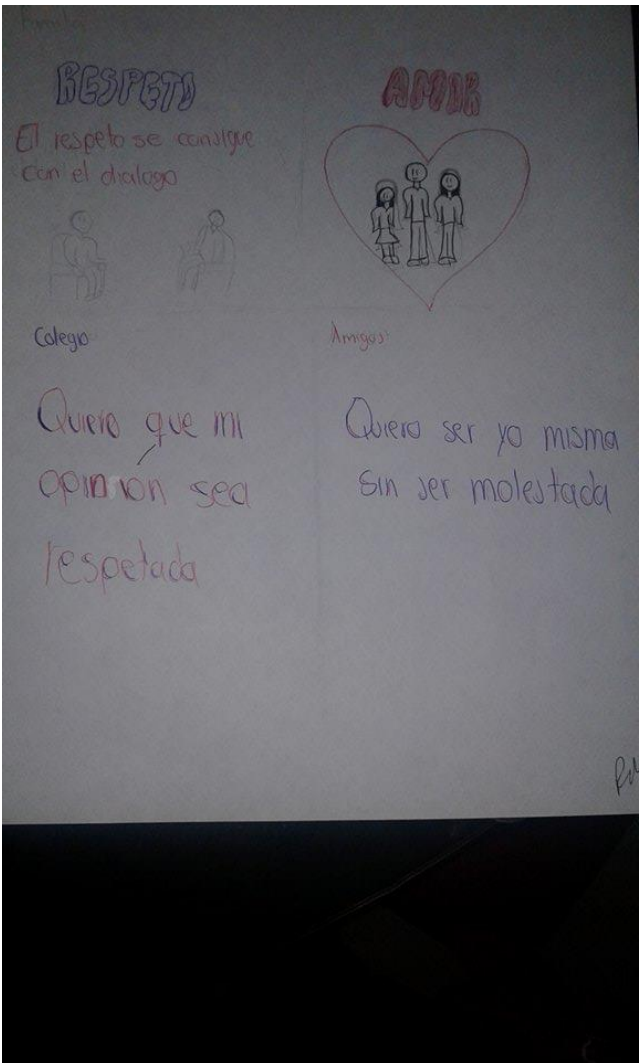 Familia
RESPETO
El respeto se consigue
con el dialogo
AMOR
Colegio:
Quiero que mi
opinion sea
respetada
Amigos:
Quiero ser yo misma
sin ser molestada